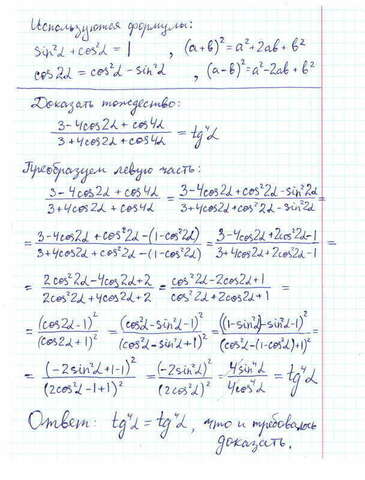 Используются формулы:
sin²α + cos²α = 1 , (a+b)² = a² + 2ab + b²
cos2α = cos²α - sin²α , (a-b)² = a² - 2ab + b²
Доказать тождество:
(3-4cos2α+cos4α)/(3+4cos2α+cos4α) = tg⁴α
Преобразуем левую часть:
(3-4cos2α+cos4α)/(3+4cos2α+cos4α) = (3-4cos2α+cos²2α-sin²2α)/(3+4cos2α+cos²2α-sin²2α) =
= (3-4cos2α+cos²2α-(1-cos²2α))/(3+4cos2α+cos²2α-(1-cos²2α)) = (3-4cos2α+2cos²2α-1)/(3+4cos2α+2cos²2α-1) =
= (2cos²2α-4cos2α+2)/(2cos²2α+4cos2α+2) = (cos²2α-2cos2α+1)/(cos²2α+2cos2α+1) =
= (cos2α-1)²/(cos2α+1)² = (cos²α-sin²α-1)²/(cos²α-sin²α+1)² = ((1-sin²α)-sin²α-1)²/(cos²α-(1-cos²α)+1)² =
= (-2sin²α+1-1)²/(2cos²α-1+1)² = (-2sin²α)²/(2cos²α)² = 4sin⁴α/4cos⁴α = tg⁴α
Ответ: tg⁴α = tg⁴α, что и требовалось
доказать.